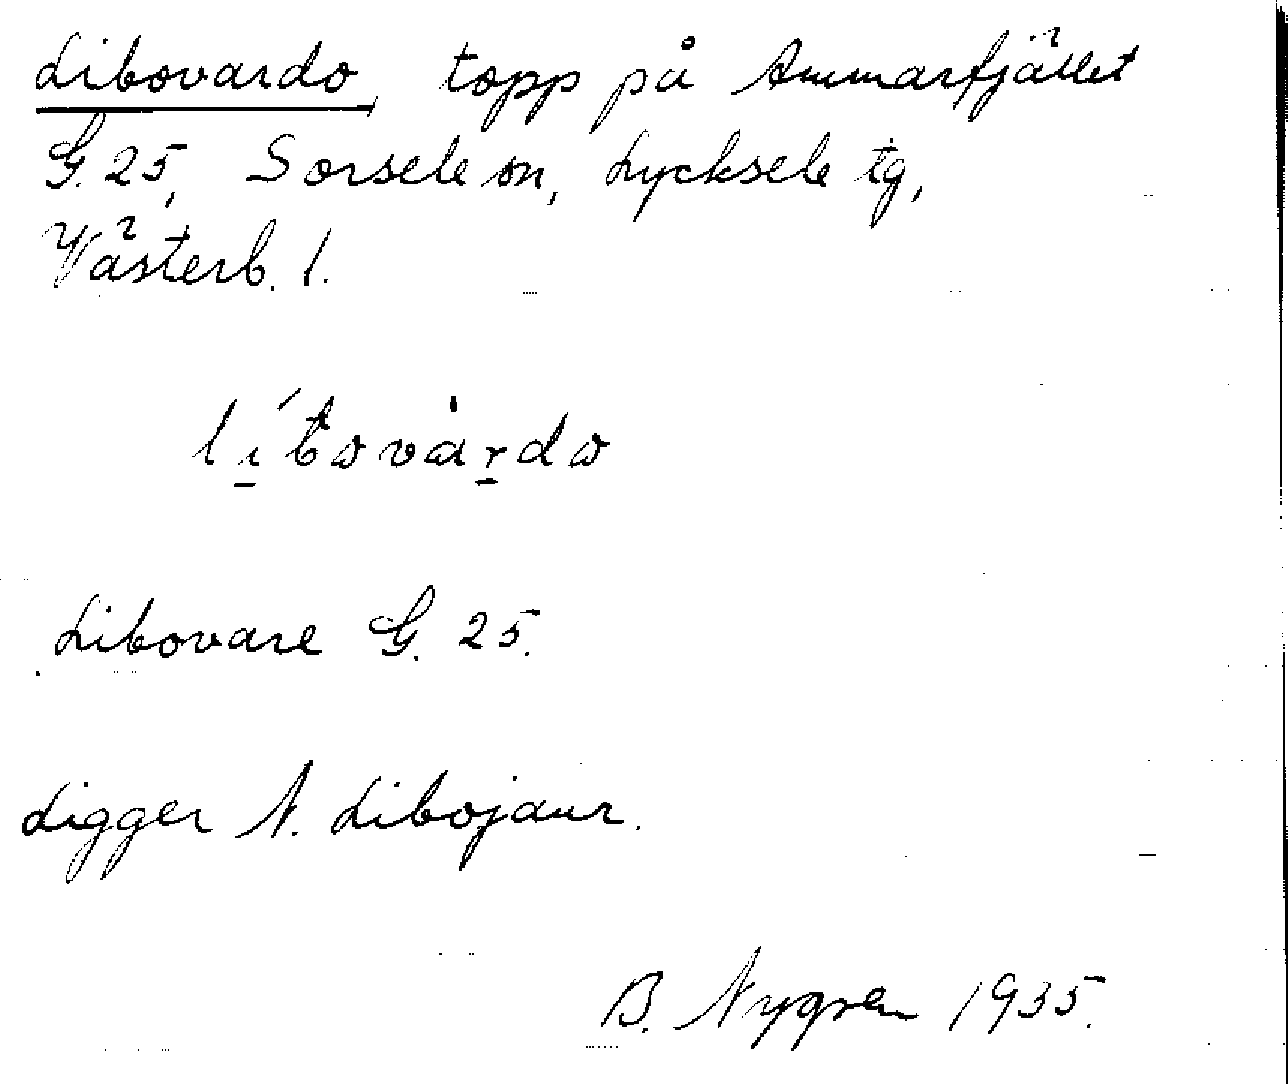 Libovardo, topp på Ammarfjället
G. 25, Sorsele sn, Lycksele tg,
Västerb. l.
lı́bωvàrdω
Libovare G. 25.
Ligger N. Libojaur.
B. Nygren 1935.